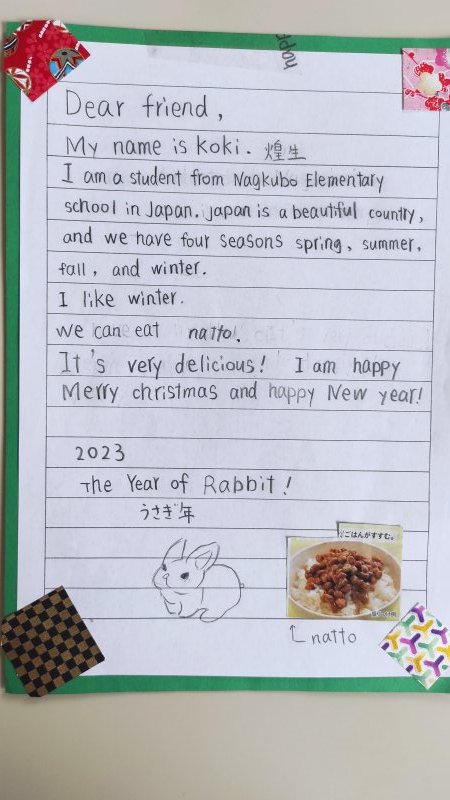 happ
Dear friend,
My name is Koki. 煌生
I am a student from Nagkubo Elementary
school in Japan. Japan is a beautiful country,
and we have four seasons spring, summer,
fall, and winter.
I like winter.
we can eat natto!.
It's very delicious! I am happy
Merry christmas and happy New year!
2023
The Year of Rabbit!
うさぎ年
ごはんがすすむ。
natto